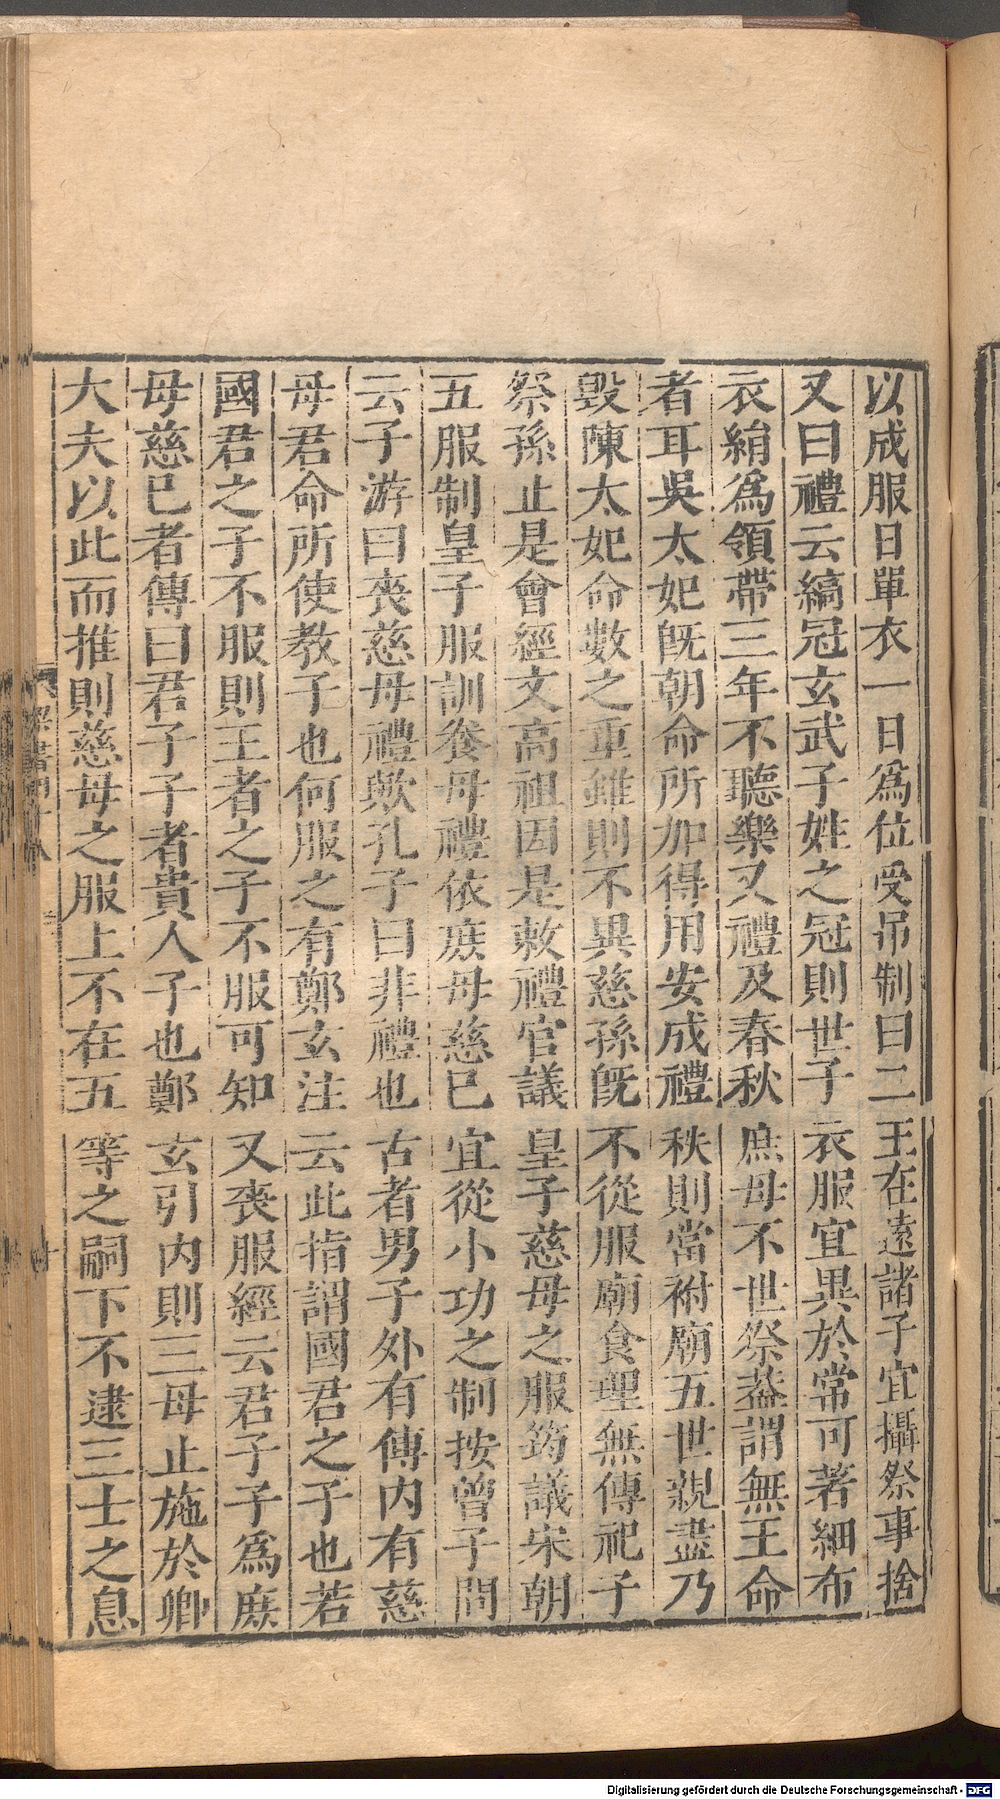 以成服日單衣一日爲位受吊制曰二王在遠諸子宜攝祭事捨
又曰禮云縞冠玄武子姓之冠則世子衣服宜異於常可著細布
衣絹爲領帶三年不聽樂又禮及春秋庶母不世祭葢謂無王命
者耳吳太妃旣朝命所加得用安成禮秩則當祔廟五世親盡乃
毁陳太妃命數之重雖則不異慈孫旣不從服廟食理無傳祀子
祭孫止是會經文高祖因是敕禮官議皇子慈母之服筠議宋朝
五服制皇子服訓養母禮依庶母慈已宜從小功之制按曾子問
云子游曰喪慈母禮歟孔子曰非禮也古者男子外有傅內有慈
母君命所使教子也何服之有鄭玄注云此指謂國君之子也若
國君之子不服則王者之子不服可知又喪服經云君子子爲庶
母慈已者傳曰君子子者貴人子也鄭玄引內則三母止施於卿
大夫以此而推則慈母之服上不在五等之嗣下不逮三士之息
Digitalisierung gefördert durch die Deutsche Forschungsgemeinschaft - DFG